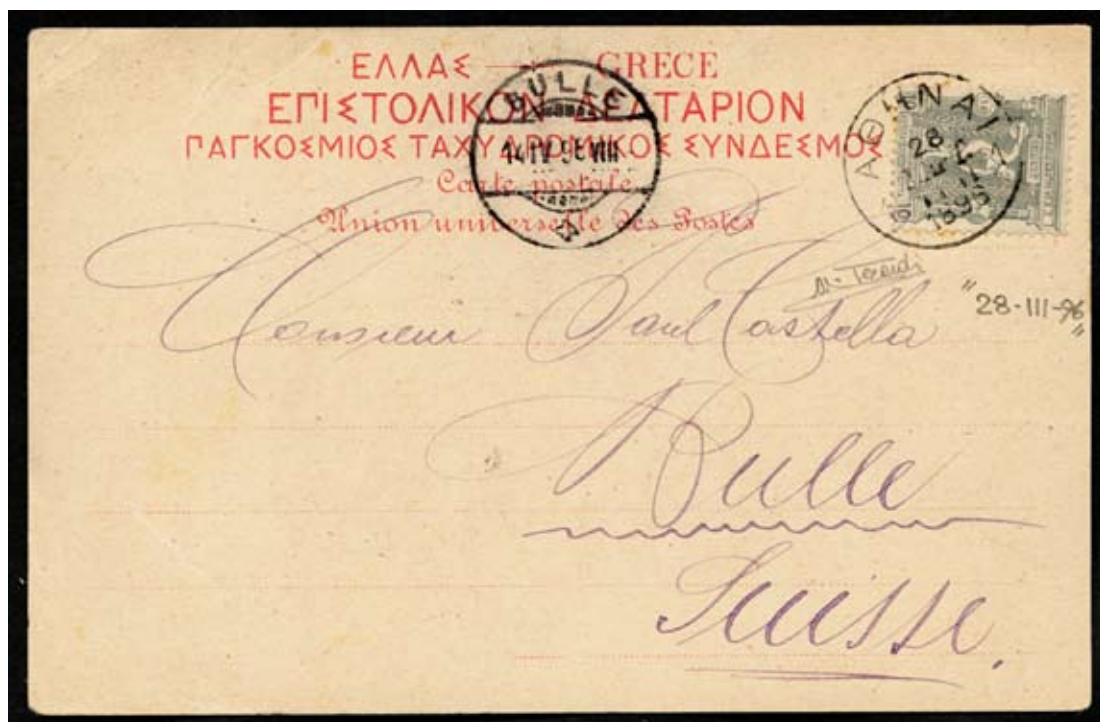 ΕΛΛΑΣ — GRECE
ΕΠΙΣΤΟΛΙΚΟΝ ΔΕΛΤΑΡΙΟΝ
ΠΑΓΚΟΣΜΙΟΣ ΤΑΧΥΔΡΟΜΙΚΟΣ ΣΥΝΔΕΣΜΟΣ
Carte postale
Union universelle des Postes
BULLE
14 IV 96 VIII
ΑΘΗΝΑΙ
28
1896
"28-III-96"
Monsieur Paul Castella
Bulle
Suisse.